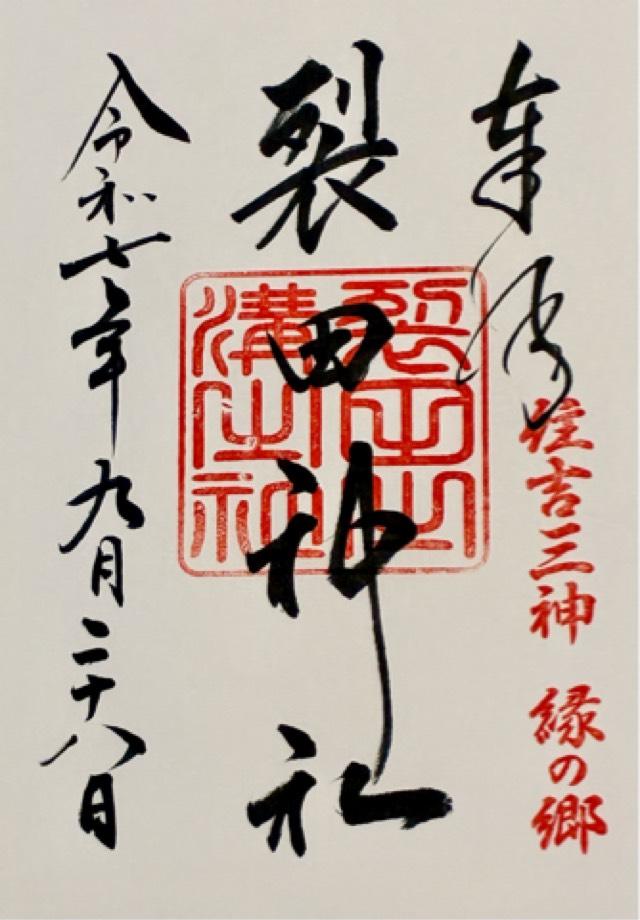 奉拝
住吉三神 縁の郷
裂田神社
裂田之溝之社
令和七年九月二十八日